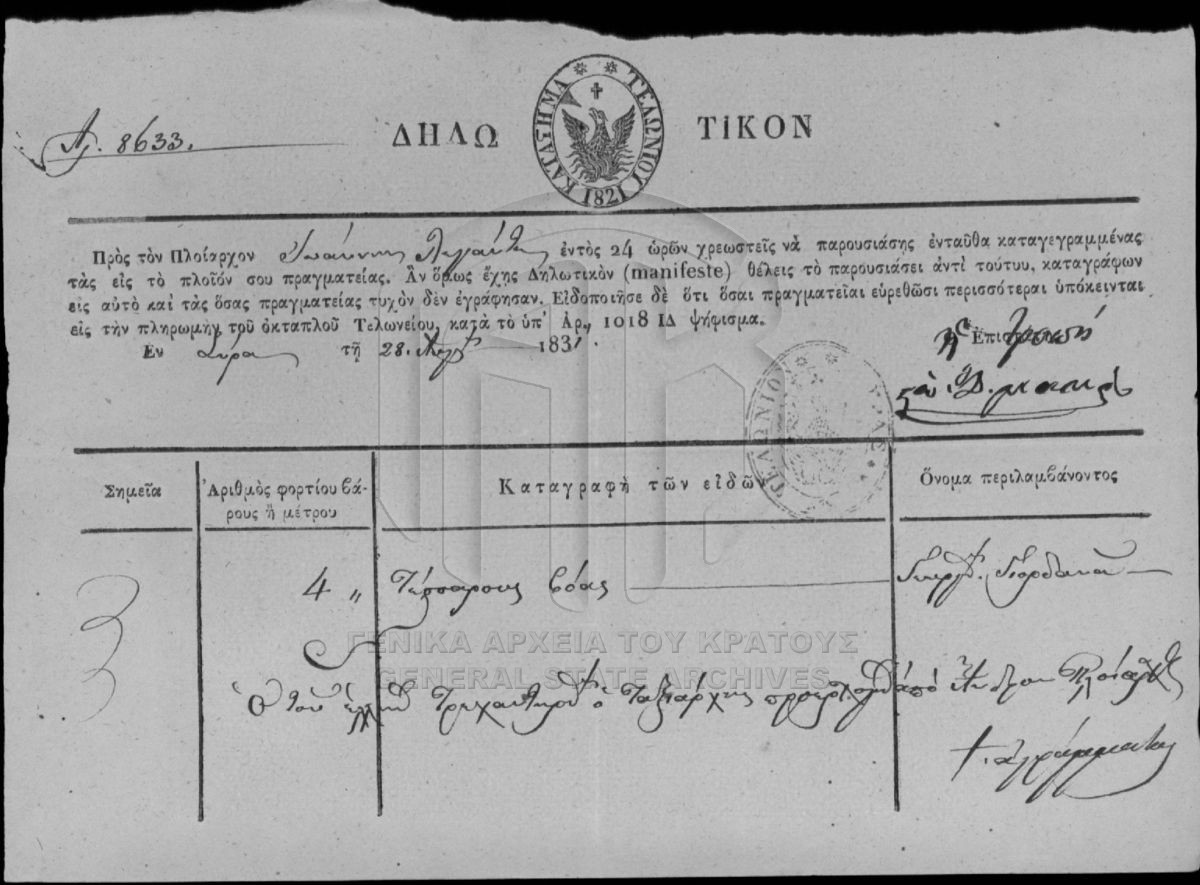 Αρ. 8633.
ΔΗΛΩΤΙΚΟΝ
ΚΑΤΑΣΤΗΜΑ ΤΕΛΩΝΙΟΥ 1821
Πρὸς τὸν Πλοίαρχον Ἰωάννης ἐντὸς 24 ὡρῶν χρεωστεῖς νὰ παρουσιάσῃς ἐνταῦθα καταγεγραμμένας
τὰς εἰς τὸ πλοῖόν σου πραγματείας. Ἂν ὅμως ἔχῃς Δηλωτικὸν (manifeste) θέλεις τὸ παρουσιάσει ἀντὶ τούτυυ, καταγράφων
εἰς αὐτὸ καὶ τὰς ὅσας πραγματείας τυχὸν δὲν ἐγράφησαν. Εἰδοποιῆσε δὲ ὅτι ὅσαι πραγματεῖαι εὑρεθῶσι περισσότεραι ὑπόκεινται
εἰς τὴν πληρωμὴν τοῦ ὀκταπλοῦ Τελωνείου, κατὰ τὸ ὑπ' Ἀρ. 1018 ΙΔ ψήφισμα.
Εν Σύρα τῇ 28. Αὐγ 1831.
ΤΕΛΩΝΙΟΝ
Σημεῖα
Ἀριθμὸς φορτίου βάρους ἢ μέτρου
Καταγραφὴ τῶν εἰδῶν
Ὄνομα περιλαμβάνοντος
4 „ Τέσσαρους βόας
ΓΕΝΙΚΑ ΑΡΧΕΙΑ ΤΟΥ ΚΡΑΤΟΥΣ
GENERAL STATE ARCHIVES
ὁ Ταξιάρχης ἀπὸ Ἄνδρον